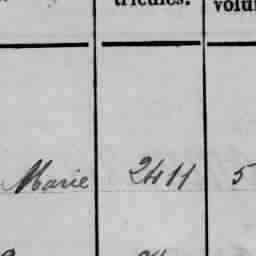 tricules. volu
Marie 2411 5